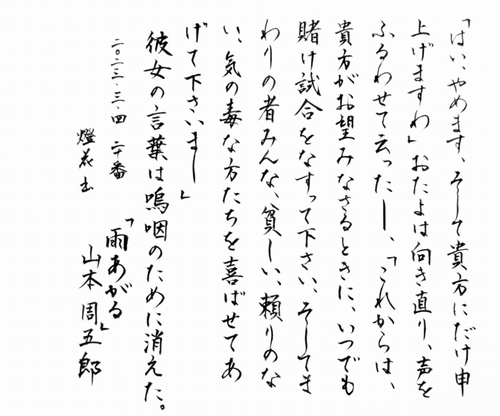 「はい、やめます、そして貴方にだけ申
上げますわ」おたよは向き直り、声を
ふるわせて云った―、「これからは、
貴方がお望みなさるときに、いつでも
賭け試合をなすって下さい、そしてま
わりの者みんな、貧しい、頼りのな
い、気の毒な方たちを喜ばせてあ
げて下さいまし」
彼女の言葉は嗚咽のために消えた。
「雨あがる」
山本周五郎
二〇二二・三・四 二十番
燈花